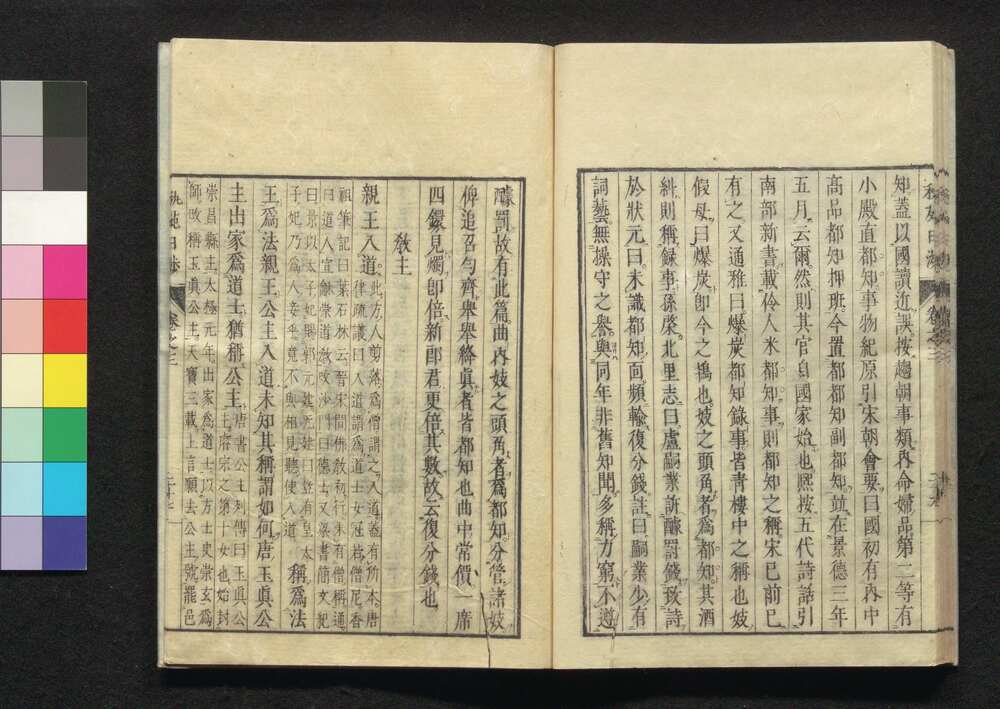 知蓋以國讀近誤按趨朝事類內命婦品第二等有
小殿直都知事物紀原引宋朝會要曰國初有內中
高品都知押班今置都都知副都知竝在景德三年
五月云爾然則其官自國家始也熙按五代詩話引
南部新書載伶人米都知事則都知之稱宋已前已
有之又通雅曰爆炭都知錄事皆青樓中之稱也妓
假母曰爆炭卽今之鴇也妓之頭角者爲都知其酒
糾則稱錄事孫棨北里志曰盧嗣業訴醵罰錢致詩
於狀元曰未識都知面頻輸復分錢註曰嗣業少有
詞藝無操守之譽與同年非舊知聞多稱力窮不遵
醵罰故有此篇曲內妓之頭角者爲都知分管諸妓
俾追召勻齊舉舉絳眞者皆都知也曲中常價一席
四鐶見燭卽倍新郎君更倍其數故云復分錢也
敎主
親王入道此方人剪落爲僧謂之入道蓋有所本唐
律疏議曰入道謂爲道士女冠若僧尼香
祖筆記曰葉石林云晉宋間佛敎初行未有僧稱通
曰道人宣崇道敎改沙門曰德士又梁書簡文
曰景以太子妃賜郭元建元建曰豈有皇太
子妃乃爲人妾乎竟不與相見聽使入道稱爲法
王爲法親王公主入道未知其稱謂如何唐玉眞公
主出家爲道士猶稱公主唐書公主列傳曰玉眞公
主睿宗之第十女也始封
崇昌縣主太極元年出家爲道士以方士史崇玄爲
師改稱玉眞公主天寶三載上言願去公主號罷邑